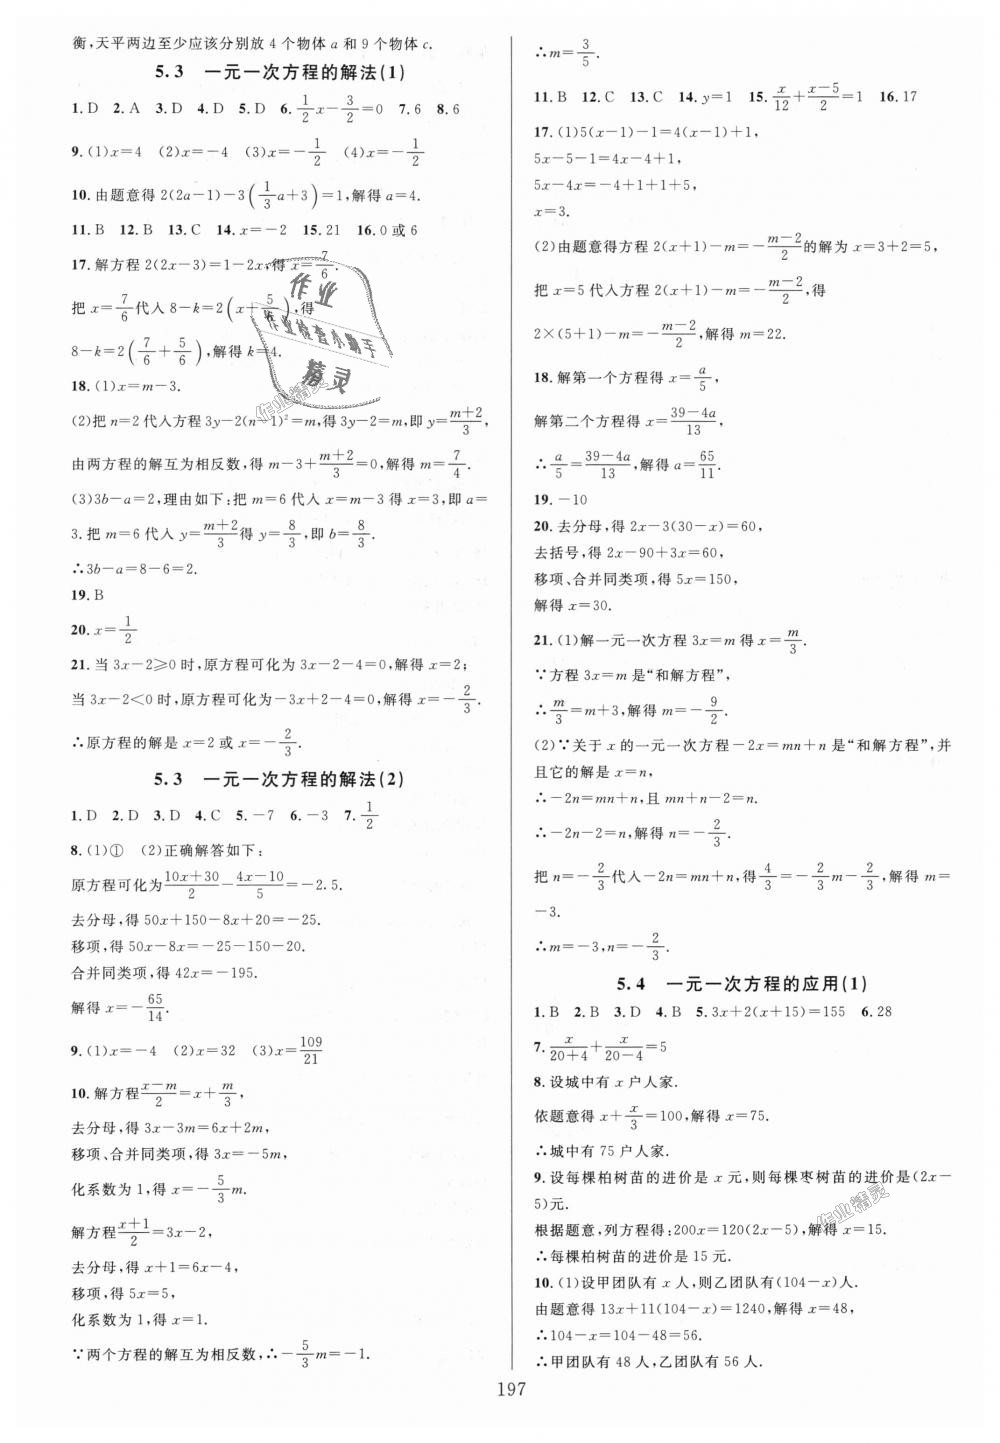 衡,天平两边至少应该分别放 4 个物体 a 和 9 个物体 c.
5.3 一元一次方程的解法(1)
1. D 2. A 3. D 4. D 5. D 6. 1/2 x-3/2=0 7. 6 8. 6
9. (1)x=4 (2)x=-4 (3)x=-1/2 (4)x=-1/2
10. 由题意得 2(2a-1)-3(1/3 a+3)=1,解得 a=4.
11. B 12. B 13. C 14. x=-2 15. 21 16. 0 或 6
17. 解方程 2(2x-3)=1-2x,得 x=7/6.
把 x=7/6 代入 8-k=2(x+5/6),得
8-k=2(7/6+5/6),解得 k=4.
18. (1)x=m-3.
(2)把 n=2 代入方程 3y-2(n-1)²=m,得 3y-2=m,即 y=(m+2)/3,
由两方程的解互为相反数,得 m-3+(m+2)/3=0,解得 m=7/4.
(3)3b-a=2,理由如下:把 m=6 代入 x=m-3 得 x=3,即 a=
3.把 m=6 代入 y=(m+2)/3 得 y=8/3,即 b=8/3.
∴3b-a=8-6=2.
19. B
20. x=1/2
21. 当 3x-2≥0 时,原方程可化为 3x-2-4=0,解得 x=2;
当 3x-2<0 时,原方程可化为-3x+2-4=0,解得 x=-2/3.
∴原方程的解是 x=2 或 x=-2/3.
5.3 一元一次方程的解法(2)
1. D 2. D 3. D 4. C 5. -7 6. -3 7. 1/2
8. (1)① (2)正确解答如下:
原方程可化为(10x+30)/2-(4x-10)/5=-2.5.
去分母,得 50x+150-8x+20=-25.
移项,得 50x-8x=-25-150-20.
合并同类项,得 42x=-195.
解得 x=-65/14.
9. (1)x=-4 (2)x=32 (3)x=109/21
10. 解方程(x-m)/2=x+m/3,
去分母,得 3x-3m=6x+2m,
移项、合并同类项,得 3x=-5m,
化系数为 1,得 x=-5/3 m.
解方程(x+1)/2=3x-2,
去分母,得 x+1=6x-4,
移项,得 5x=5,
化系数为 1,得 x=1.
∵两个方程的解互为相反数,∴-5/3 m=-1.
∴m=3/5.
11. B 12. C 13. C 14. y=1 15. x/12+(x-5)/2=1 16. 17
17. (1)5(x-1)-1=4(x-1)+1,
5x-5-1=4x-4+1,
5x-4x=-4+1+1+5,
x=3.
(2)由题意得方程 2(x+1)-m=-(m-2)/2 的解为 x=3+2=5,
把 x=5 代入方程 2(x+1)-m=-(m-2)/2,得
2×(5+1)-m=-(m-2)/2,解得 m=22.
18. 解第一个方程得 x=a/5,
解第二个方程得 x=(39-4a)/13,
∴a/5=(39-4a)/13,解得 a=65/11.
19. -10
20. 去分母,得 2x-3(30-x)=60,
去括号,得 2x-90+3x=60,
移项、合并同类项,得 5x=150,
解得 x=30.
21. (1)解一元一次方程 3x=m 得 x=m/3.
∵方程 3x=m 是“和解方程”,
∴m/3=m+3,解得 m=-9/2.
(2)∵关于 x 的一元一次方程-2x=mn+n 是“和解方程”,并
且它的解是 x=n,
∴-2n=mn+n,且 mn+n-2=n.
∴-2n-2=n,解得 n=-2/3.
把 n=-2/3 代入-2n=mn+n,得 4/3=-2/3 m-2/3,解得 m=
-3.
∴m=-3,n=-2/3.
5.4 一元一次方程的应用(1)
1. B 2. B 3. D 4. B 5. 3x+2(x+15)=155 6. 28
7. x/(20+4)+x/(20-4)=5
8. 设城中有 x 户人家.
依题意得 x+x/3=100,解得 x=75.
∴城中有 75 户人家.
9. 设每棵柏树苗的进价是 x 元,则每棵枣树苗的进价是(2x-
5)元.
根据题意,列方程得:200x=120(2x-5),解得 x=15.
∴每棵柏树苗的进价是 15 元.
10. (1)设甲团队有 x 人,则乙团队有(104-x)人.
由题意得 13x+11(104-x)=1240,解得 x=48,
∴104-x=104-48=56.
∴甲团队有 48 人,乙团队有 56 人.
197
作业
作业检查小助手
精灵
作业精灵
作业精灵